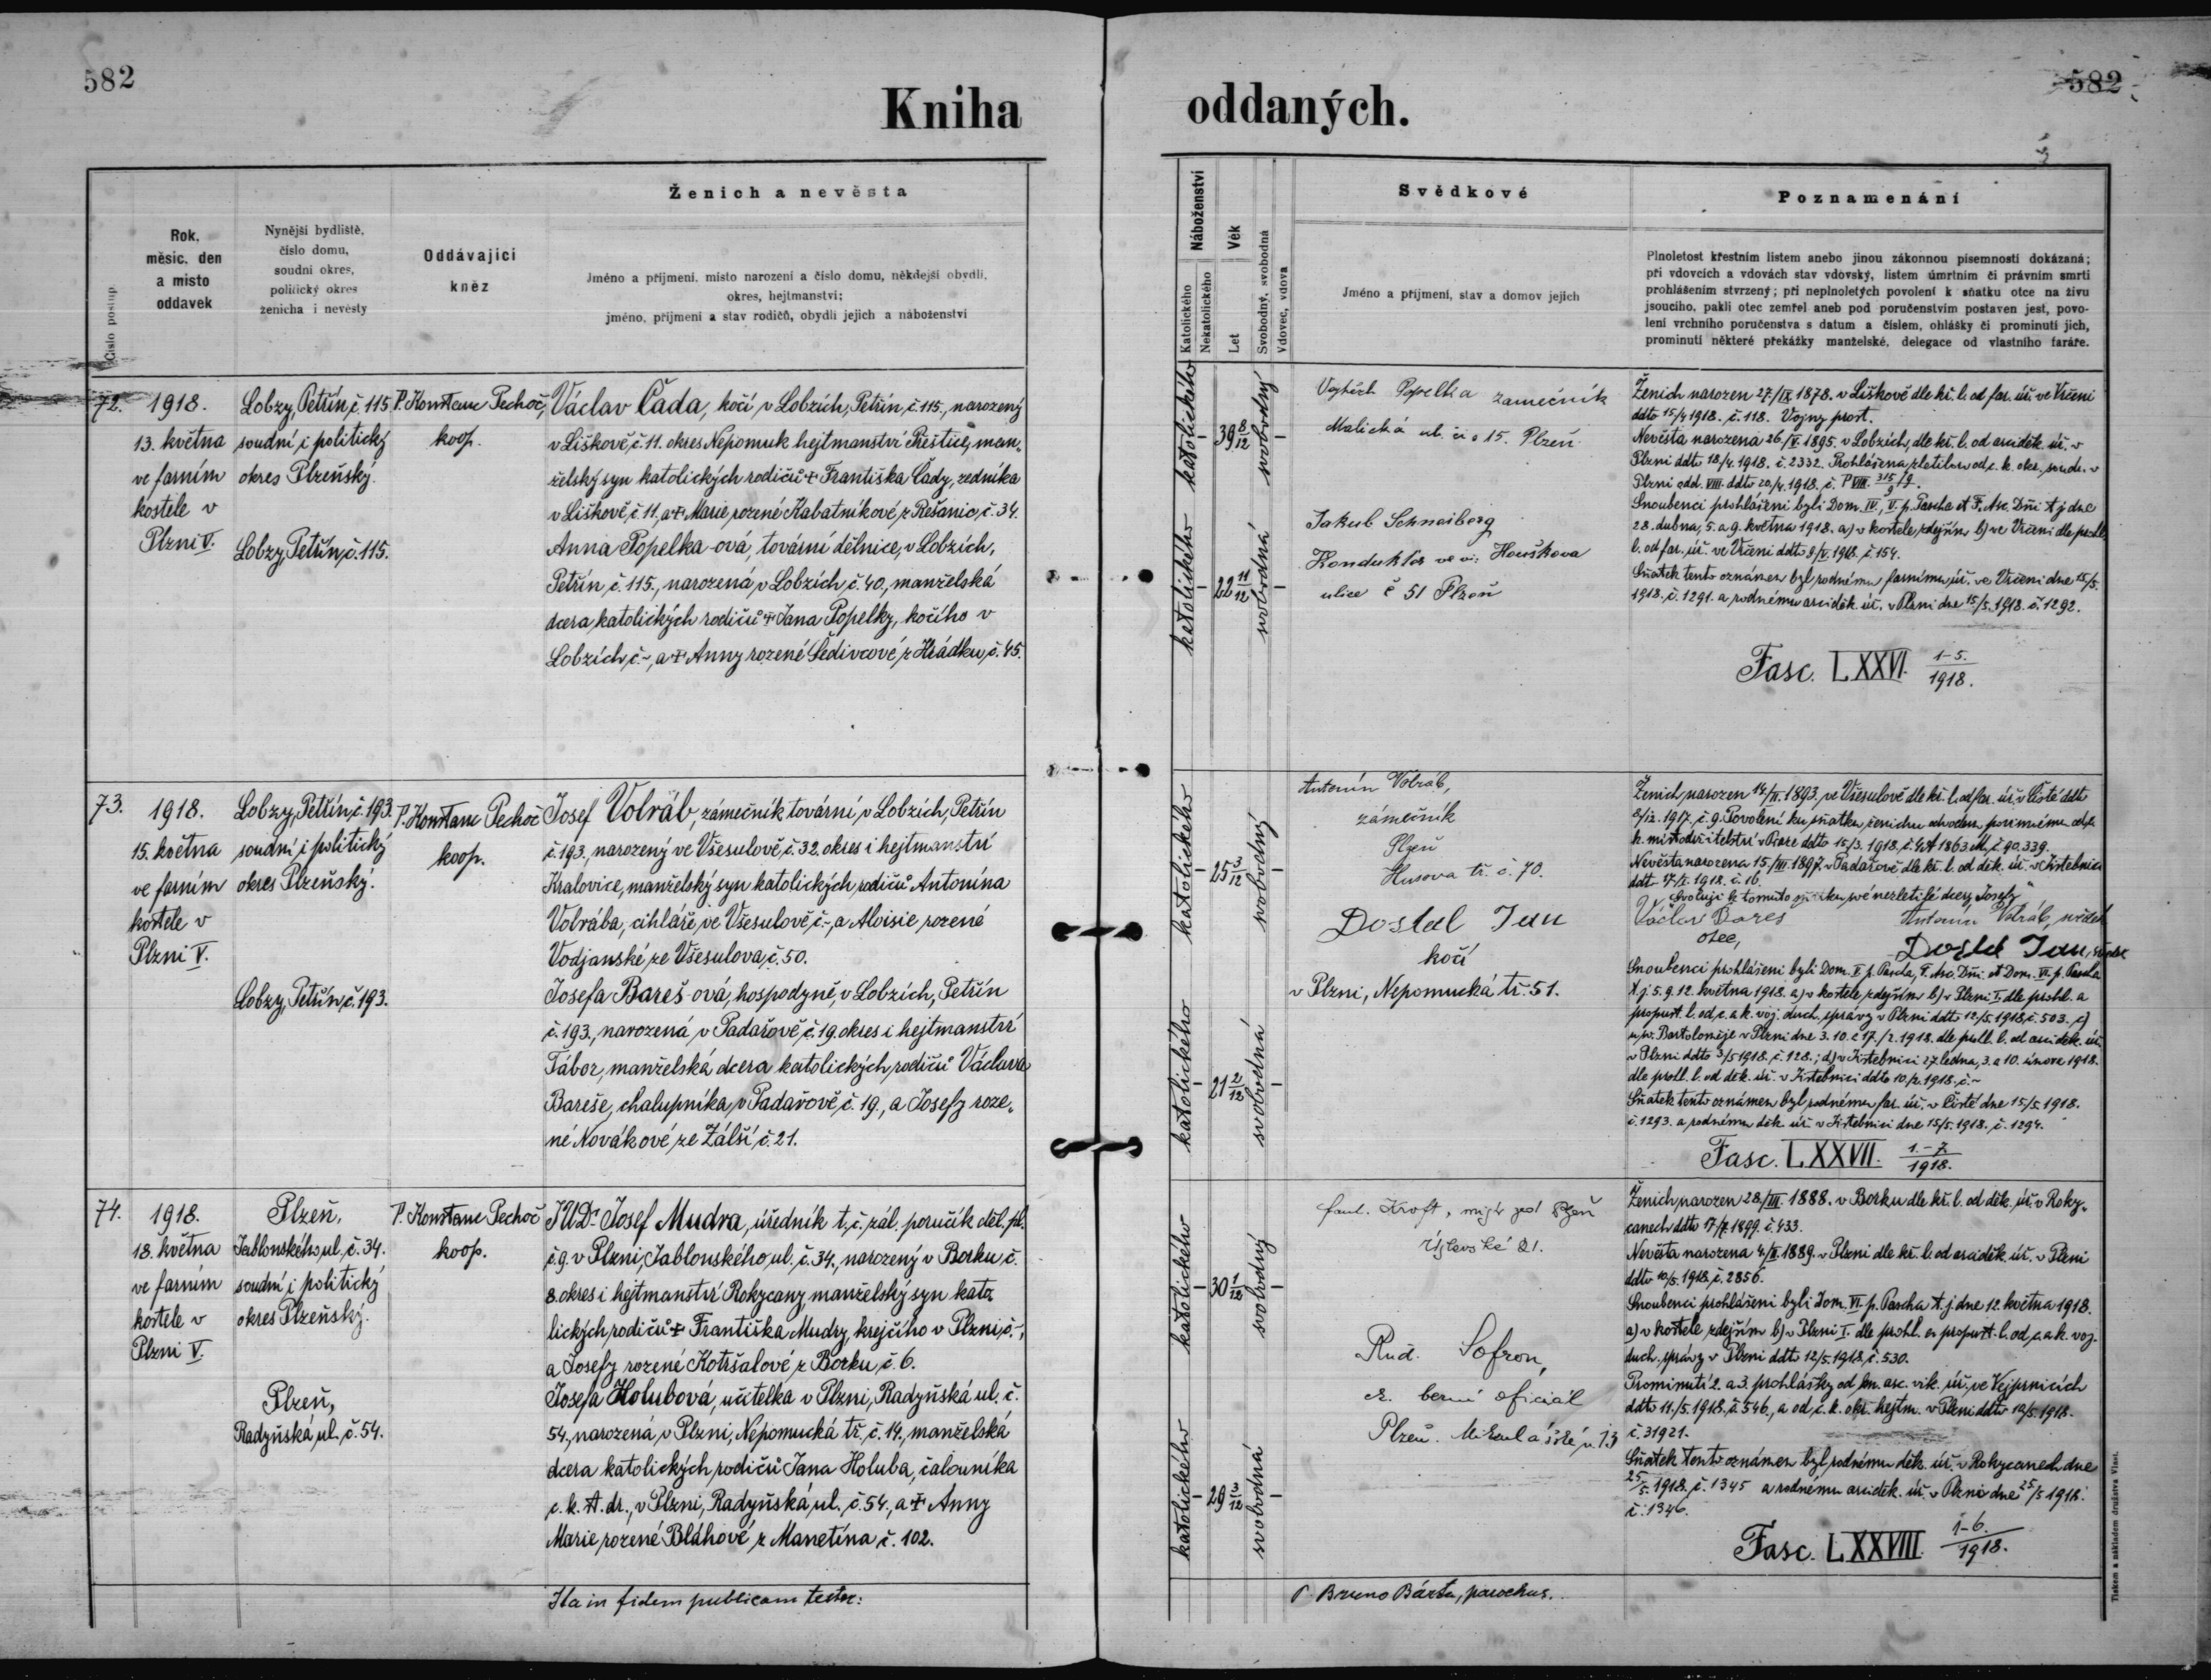 582
582
Kniha oddaných.
Číslo postup
Rok, měsíc, den a místo oddavek
Nynější bydliště, číslo domu, soudní okres, politický okres ženicha i nevěsty
Oddávající kněz
Ženich a nevěsta
Jméno a příjmení, místo narození a číslo domu, někdejší obydlí,
okres, hejtmanství;
jméno, příjmení a stav rodičů, obydlí jejich a náboženství
Náboženství
Katolického
Nekatolického
Věk
Let
Svobodný, svobodná
Vdovec, vdova
Svědkové
Jméno a příjmení, stav a domov jejich
Poznamenání
Plnoletost křestním listem anebo jinou zákonnou písemností dokázaná;
při vdovcích a vdovách stav vdovský, listem úmrtním či právním smrti
prohlášením stvrzený; při neplnoletých povolení k sňatku otce na živu
jsoucího, pakli otec zemřel aneb pod poručenstvím postaven jest, povo-
lení vrchního poručenstva s datum a číslem, ohlášky či prominutí jich,
prominutí některé překážky manželské, delegace od vlastního faráře.
72.
1918.
13. května
ve farním
kostele v
Plzni V.
Lobzy, Petřín, č. 115
soudní i politický
okres Plzeňský.
Lobzy, Petřín, č. 115.
P. Konstanc Pechoč,
koop.
Václav Čada, kočí v Lobzích, Petřín, č. 115., narozený
v Liškově, č. 11. okres Nepomuk hejtmanství Přeštice, man„
želský syn katolických rodičů + Františka Čady, zedníka
v Liškově, č. 11, a + Marie rozené Kabatníkové, z Řešanic, č. 34.
Anna Popelka-ová, tovární dělnice, v Lobzích,
Petřín č. 115., narozená v Lobzích č. 40, manželská
dcera katolických rodičů + Jana Popelky, kočího v
Lobzích, č. -, a + Anny rozené Šedivcové z Hrádku, č. 45.
katolického
- 39 8/12 svobodný -
katolického
- 22 11/12 svobodná -
Vojtěch Popelka zamečník
Malická ul. 15. Plzeň
Jakub Schneiberg
Konduktér
ulice č 51 Plzeň
Ženich narozen 27/IX 1878. v Liškově dle kř. l. od far. úř. ve Vrčeni
ddto 15/4 1918. č. 118. Vojny prost.
Nevěsta narozena 26/V. 1895. v Lobzích, dle kř. l. od arciděk. úř. v
Plzni ddto 18/4. 1918. č. 2332. Prohlášena zletilou od c. k. okr. soudu v
Plzni odd. VIII. ddto 20/4. 1918. č. P VIII. 315/9
Snoubenci prohlášeni byli Dom. IV., V. p. Pascha et F. Asc. Dñi t. j. dne
28. dubna, 5. a 9. května 1918. a) v kostele zdejším b) ve Vrčeni dle prohl.
l. od far. úř. ve Vrčeni ddto 9/V. 1918. č. 154.
Sňatek tento oznámen byl rodnému farnímu úř. ve Vrčeni dne 15/5.
1918. č. 1291. a rodnému arciděk. úř. v Plzni dne 15/5. 1918. č. 1292.
Fasc. LXXVI. 1-5./1918.
73.
1918.
15. května
ve farním
kostele v
Plzni V.
Lobzy, Petřín, č. 193.
soudní i politický
okres Plzeňský.
Lobzy, Petřín, č. 193.
P. Konstanc Pechoč
koop.
Josef Volráb, zámečník tovární v Lobzích, Petřín
č. 193, narozený ve Všesulově, č. 32. okres i hejtmanství
Kralovice, manželský syn katolických rodičů Antonína
Volrába, cihláře, ve Všesulově, č. -, a Aloisie rozené
Vodjanské ze Všesulova, č. 50.
Josefa Bareš-ová, hospodyně, v Lobzích, Petřín
č. 193., narozená v Padařově, č. 19. okres i hejtmanství
Tábor, manželská dcera katolických rodičů Václava
Bareše, chalupníka, v Padařově, č. 19., a Josefy roze„
né Novákové, ze Zálší, č. 21.
katolického
- 25 3/12 svobodný -
katolického
- 21 2/12 svobodná -
Antonín Volráb,
zámečník
Plzeň
Husova tř. č. 70.
Dostal Jan
kočí
v Plzni, Nepomucká tř. 51.
Ženich narozen 14/II. 1893. ve Všesulově dle kř. l. od far. úř. v Čisté ddto
1917. č. 9. Povolení ku sňatku ženichu
k. místodržitelství v Praze ddto 15/3. 1918. č. 90.339.
Nevěsta narozena 15/III. 1897. v Padařově dle kř. l. od děk. úř. v Jistebnici
ddt 1918. č. 16.
Svoluji k tomuto sňatku své nezletilé dcery Josefy
Václav Bareš Antonín Volráb, svědek
otec, Dostal Jan, svědek
Snoubenci prohlášeni byli Dom. V p. Pascha, F. Asc. Dñi. et Dom. VI. p. Pascha
t. j. 5. 9. 12. května 1918. a) v kostele zdejším b) v Plzni I. dle prohl. a
propušt. l. od c. a k. voj. duch. správy v Plzni ddto 12/5. 1918. č. 503. c)
u sv. Bartoloměje v Plzni dne 3. 10. a 17./2. 1918. dle prohl. l. od arciděk. úř.
v Plzni ddto 3/5 1918. č. 128.; d) v Jistebnici 27. ledna, 3. a 10. února 1918.
dle prohl. l. od děk. úř. v Jistebnici ddto 10/2. 1918. č. -
Sňatek tento oznámen byl rodnému far. úř. v Čisté dne 15/5. 1918.
č. 1293. a rodnému děk. úř. v Jistebnici dne 15/5. 1918. č. 1294.
Fasc. LXXVII. 1-7/1918.
74.
1918.
18. května
ve farním
kostele v
Plzni V.
Plzeň,
Jablonského ul. č. 34.
soudní i politický
okres Plzeňský.
Plzeň,
Radyňská ul. č. 54.
P. Konstanc Pechoč
koop.
JUDr. Josef Mudra, úředník t. č. zál. poručík děl. pl.
č. 9. v Plzni, Jablonského ul. č. 34., narozený v Borku č.
8. okres i hejtmanství Rokycany, manželský syn kato
lických rodičů + Františka Mudry, krejčího v Plzni, č. -,
a Josefy rozené Kotršalové z Borku, č. 6.
Josefa Holubová, učitelka v Plzni, Radyňská ul. č.
54., narozená v Plzni, Nepomucká tř. č. 14., manželská
dcera katolických rodičů Jana Holuba, čalouníka
c. k. st. dr., v Plzni, Radyňská ul. č. 54., a + Anny
Marie rozené Bláhové z Manetína č. 102.
katolického
- 30 1/12 svobodný -
katolického
- 29 3/12 svobodná -
Kroft, Plzeň
21.
Rud. Sofron,
berní oficiál
Plzeň. Mikulášské n. 13
Ženich narozen 28./III. 1888. v Borku dle kř. l. od děk. úř. v Roky„
canech ddto 1899. č. 433.
Nevěsta narozena 4/II 1889. v Plzni dle kř. l. od arciděk. úř. v Plzni
ddto 10/5. 1918. č. 2856.
Snoubenci prohlášeni byli Dom. VI. p. Pascha t. j. dne 12. května 1918.
a) v kostele zdejším b) v Plzni I. dle prohl. a propušt. l. od c. a k. voj.
duch. správy v Plzni ddto 12/5. 1918. č. 530.
Prominutí 2. a 3. prohlášky od kn. arc. vik. úř. ve Vejprnicích
ddto 11./5. 1918. č. 546., a od c. k. okr. hejtm. v Plzni ddto 10/5. 1918.
č. 31921.
Sňatek tento oznámen byl rodnému děk. úř. v Rokycanech dne
25/5. 1918. č. 1345 a rodnému arciděk. úř. v Plzni dne 25/5 1918.
č. 1346.
Fasc. LXXVIII. 1-6./1918.
Ita in fidem publicam testor:
P. Bruno Bárta, parochus.
Tiskem a nákladem družstva Vlast.